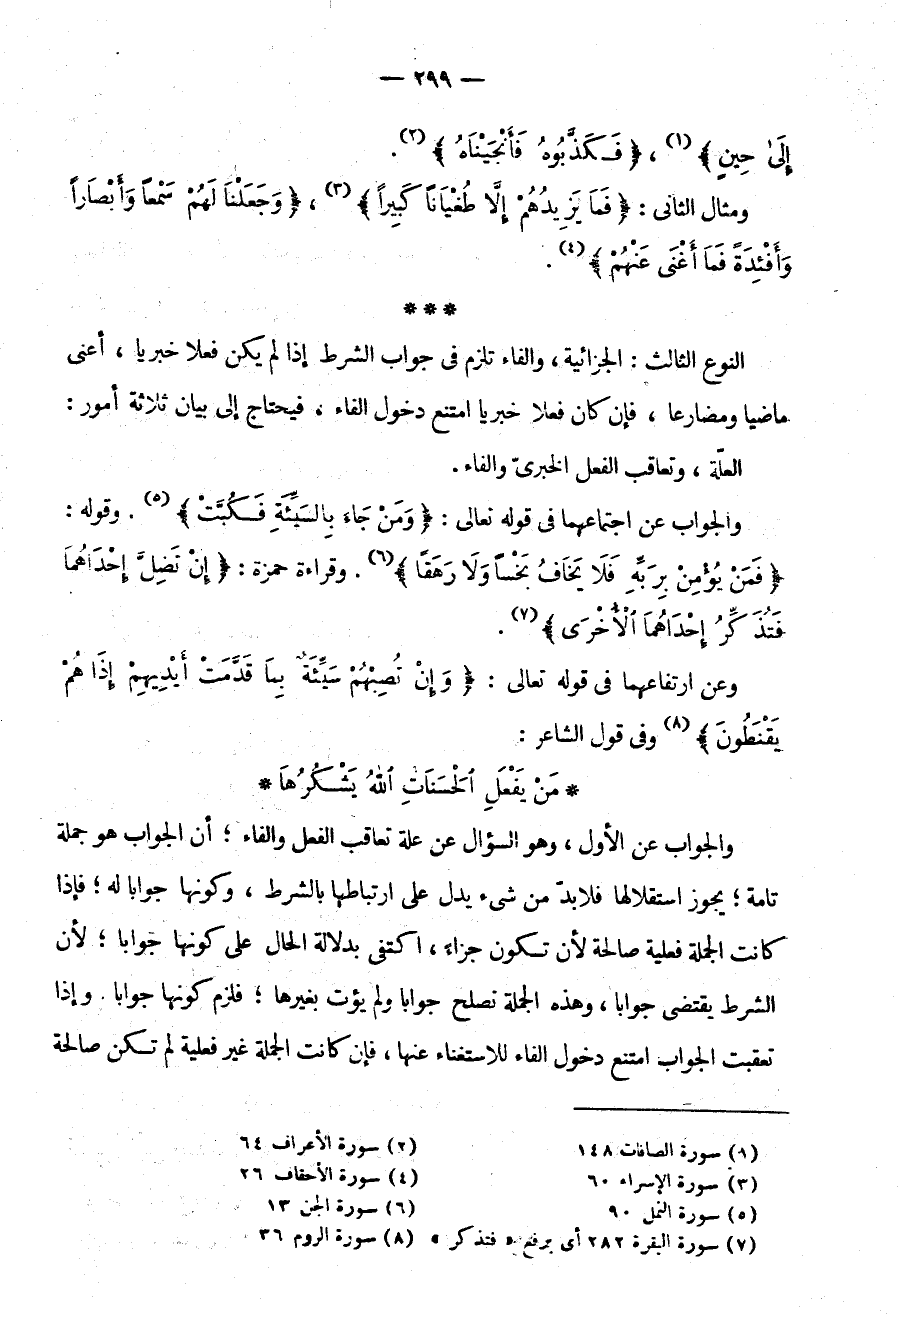 — ٢٩٩ —
إِلَىٰ حِينٍ ﴾ (١) ، ﴿ فَكَذَّبُوهُ فَأَنْجَيْنَاهُ ﴾ (٢) .
ومثال الثانى : ﴿ فَمَا يَزِيدُهُمْ إِلَّا طُغْيَانًا كَبِيراً ﴾ (٣) ، ﴿ وَجَعَلْنَا لَهُمْ سَمْعاً وَأَبْصَاراً
وَأَفْئِدَةً فَمَا أَغْنَى عَنْهُمْ ﴾ (٤) .
* * *
النوع الثالث : الجزائية ، والفاء تلزم فى جواب الشرط إذا لم يكن فعلا خبريا ، أعنى
ماضيا ومضارعا ، فإن كان فعلا خبريا امتنع دخول الفاء ، فيحتاج إلى بيان ثلاثة أمور :
العلّة ، وتعاقب الفعل الخبرىّ والفاء .
والجواب عن اجتماعهما فى قوله تعالى : ﴿ وَمَنْ جَاءَ بِالسَّيِّئَةِ فَكُبَّتْ ﴾ (٥) . وقوله :
﴿ فَمَنْ يُؤْمِنْ بِرَبِّهِ فَلَا يَخَافُ بَخْساً وَلَا رَهَقًا ﴾ (٦) . وقراءة حمزة : ﴿ إِنْ تَضِلَّ إِحْدَاهُمَا
فَتُذَكِّرُ إِحْدَاهُمَا ٱلْأُخْرَى ﴾ (٧) .
وعن ارتفاعهما فى قوله تعالى : ﴿ وَإِنْ تُصِبْهُمْ سَيِّئَةٌ بِمَا قَدَّمَتْ أَيْدِيهِمْ إِذَا هُمْ
يَقْنَطُونَ ﴾ (٨) وفى قول الشاعر :
* مَنْ يَفْعَلِ ٱلْحَسَنَاتِ ٱللهُ يَشْكُرُهَا *
والجواب عن الأول ، وهو السؤال عن علة تعاقب الفعل والفاء ؛ أن الجواب هو جملة
تامة ؛ يجوز استقلالها فلابدّ من شىء يدل على ارتباطها بالشرط ، وكونها جوابا له ؛ فإذا
كانت الجملة فعلية صالحة لأن تكون جزاءً ، اكتفى بدلالة الحال على كونها جوابا ؛ لأن
الشرط يقتضى جوابا ، وهذه الجملة تصلح جوابا ولم يؤت بغيرها ؛ فلزم كونها جوابا . وإذا
تعقبت الجواب امتنع دخول الفاء للاستغناء عنها ، فإن كانت الجملة غير فعلية لم تكن صالحة
(١) سورة الصافات ١٤٨ (٢) سورة الأعراف ٦٤
(٣) سورة الإسراء ٦٠ (٤) سورة الأحقاف ٢٦
(٥) سورة النمل ٩٠ (٦) سورة الجن ١٣
(٧) سورة البقرة ٢٨٢ أى برفع « فتذكر » (٨) سورة الروم ٣٦